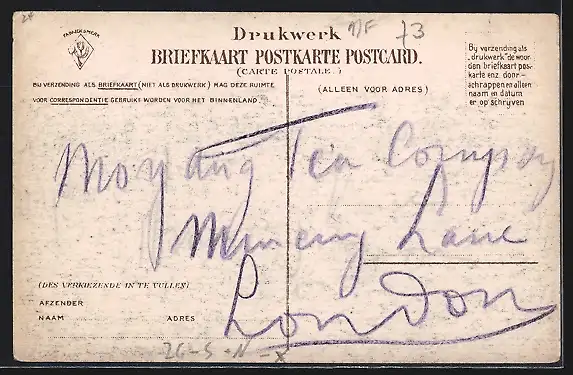 24
FABRIEKSMERK
Drukwerk
73
BRIEFKAART POSTKARTE POSTCARD.
(CARTE POSTALE.)
BIJ VERZENDING ALS BRIEFKAART (NIET ALS DRUKWERK) MAG DEZE RUIMTE
VOOR CORRESPONDENTIE GEBRUIKT WORDEN VOOR HET BINNENLAND.
(ALLEEN VOOR ADRES)
Bij verzending als
„drukwerk" de woor-
den briefkaart pos-
karte enz. door-
schrappen en alleen
naam en datum
er op schrijven
Moyang Tea Company
Mincing Lane
London
(DES VERKIEZENDE IN TE VULLEN)
AFZENDER
NAAM ADRES